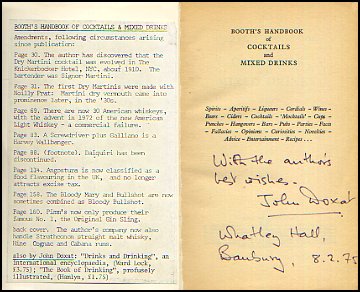 BOOTH'S HANDBOOK OF COCKTAILS & MIXED DRINKS
Amendments, following circumstances arising
since publication:
Page 30. The author has discovered that the
Dry Martini cocktail was evolved in The
Knickerbocker Hotel, NYC, about 1910. The
bartender was Signor Martini.
Page 31. The first Dry Martinis were made with
Noilly Prat: Martini dry vermouth came into
prominence later, in the '30s.
Page 69. There are now 30 American whiskeys,
with the advent in 1972 of the new American
Light Whiskey - a commercial failure.
Page 83. A Screwdriver plus Galliano is a
Harvey Wallbanger.
Page 88. (footnote). Daiquiri has been
discontinued.
Page 114. Angostura is now classified as a
food flavouring in the UK, and no longer
attracts excise tax.
Page 159. The Bloody Mary and Bullshot are now
sometimes combined as Bloody Bullshot.
Page 160. Pimm's now only produce their
famous No. 1, the Original Gin Sling.
back cover. The author's company now also
handle Strathconon straight malt whisky,
Hine Cognac and Cabana rum.
also by John Doxat: "Drinks and Drinking", an
international encyclopaedia, (Ward Lock,
£3.75); "The Book of Drinking", profusely
illustrated, (Hamlyn, £1.75)
BOOTH'S HANDBOOK
of
COCKTAILS
and
MIXED DRINKS
Spirits - Aperitifs - Liqueurs - Cordials - Wines -
Beers - Ciders - Cocktails - 'Mocktails' - Cups -
Punches - Hangovers - Bars - Pubs - Parties - Facts
- Fallacies - Opinions - Curiosities - Novelties -
Advice - Entertainment - Recipes -
With the author's
best wishes.
John Doxat
Whatley Hall,
Banbury, 8.2.75